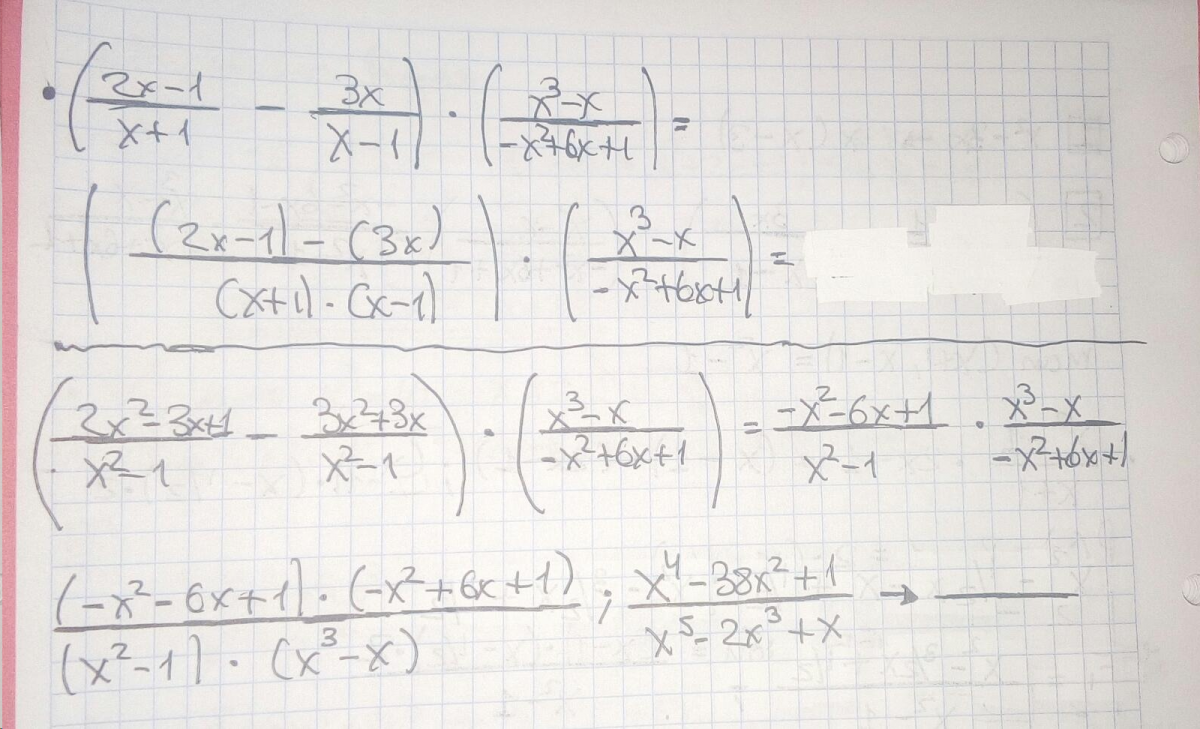 • ((2x-1)/(x+1) - 3x/(x-1)) · ((x³-x)/(-x²+6x+1)) =
(((2x-1) - (3x))/((x+1)·(x-1))) · ((x³-x)/(-x²+6x+1)) =
((2x²-3x+1)/(x²-1) - (3x²+3x)/(x²-1)) · ((x³-x)/(-x²+6x+1)) = (-x²-6x+1)/(x²-1) · (x³-x)/(-x²+6x+1)
((-x²-6x+1)·(-x²+6x+1))/((x²-1)·(x³-x)) ; (x⁴-38x²+1)/(x⁵-2x³+x) →